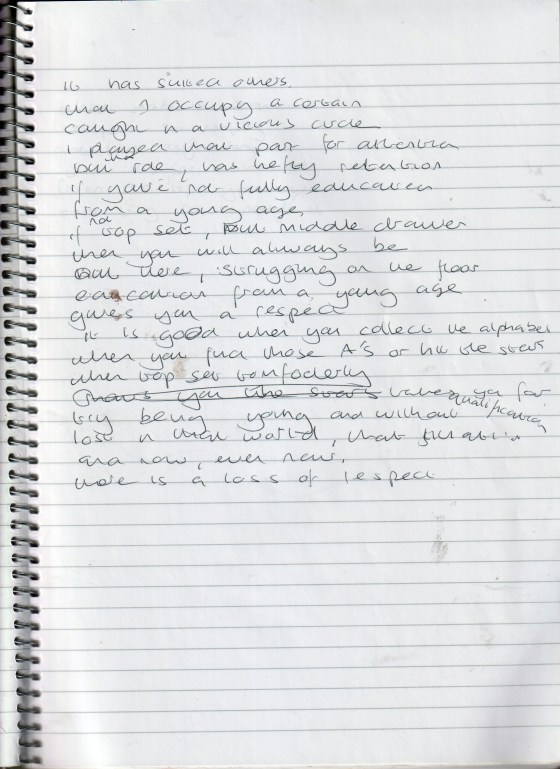 it has suited others
that I occupy a certain
caught in a vicious circle
I played that part for attention
but the role, has hefty retention
if you're not fully educated
from a young age,
if not top set, but middle drawer
then you will always be
out there, struggling on the floor
education from a young age
gives you a respect
it is good when you collect the alphabet
when you find those A's or hit the stars
when top set
shows you the stars takes you far
try being young and without qualification
lost in that world, that
and now, even now,
there is a loss of respect